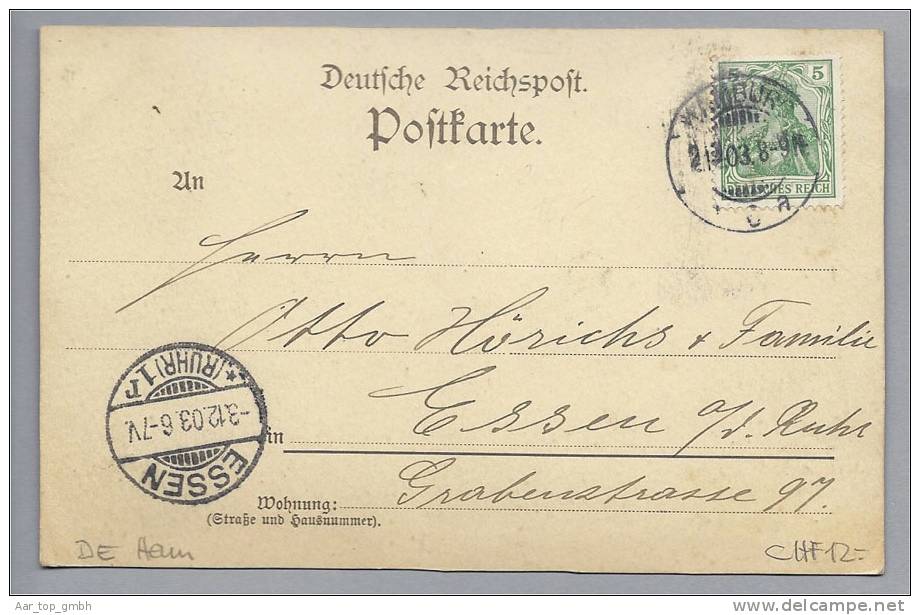 Deutsche Reichspost.
Postkarte.
5
HAMBURG
2.12.03. 8-9N.
* C a
DEUTSCHES REICH
An
Herrn
Otto Hörichs & Familie
in Essen a/d. Ruhr
Grabenstrasse 97.
Wohnung:
(Straße und Hausnummer).
*(RUHR) 1 r
-3.12.03. 6-7V.
ESSEN
DE Ham
CHF 12.-
Aar_top_gmbh
www.delcampe.net